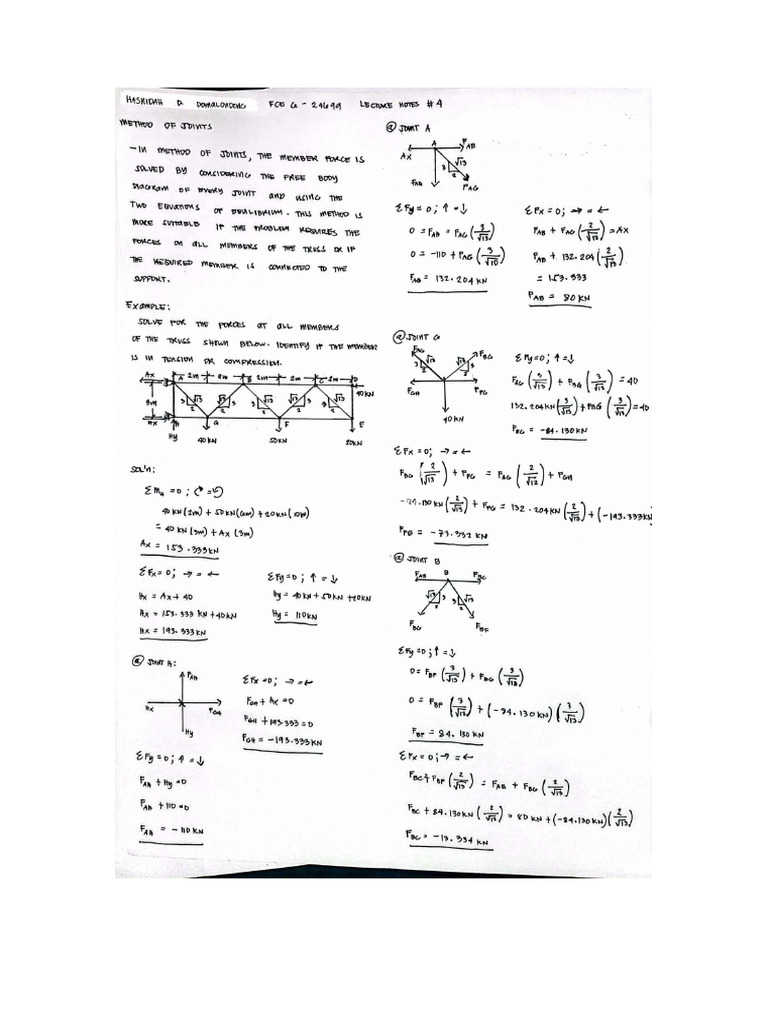 HASNIDAH D. DOMALONDONG FCE G - 24699 LECTURE NOTES #4
METHOD OF JOINTS
- IN METHOD OF JOINTS, THE MEMBER FORCE IS
SOLVED BY CONSIDERING THE FREE BODY
DIAGRAM OF EVERY JOINT AND USING THE
TWO EQUATIONS OF EQUILIBRIUM. THIS METHOD IS
MORE SUITABLE IF THE PROBLEM REQUIRES THE
FORCES ON ALL MEMBERS OF THE TRUSS OR IF
THE REQUIRED MEMBER IS CONNECTED TO THE
SUPPORT.
EXAMPLE:
SOLVE FOR THE FORCES AT ALL MEMBERS
OF THE TRUSS SHOWN BELOW. IDENTIFY IF THE MEMBER
IS IN TENSION OR COMPRESSION.
Ax A 2m B 2m 2m C 2m D
40KN
3m 3 √13 2 3 √13 2 3 √13 2 3 √13 2
Hx H G F E
Hy 40KN 50KN 20KN
SOL'N:
ΣM_H = 0; ↻ = ↺
40KN(2m) + 50KN(6m) + 20KN(10m)
= 40KN(3m) + Ax(3m)
Ax = 153.333KN
ΣFx = 0; → = ←
Hx = Ax + 40
Hx = 153.333 KN + 40KN
Hx = 193.333KN
ΣFy = 0; ↑ = ↓
Hy = 40KN + 50KN + 20KN
Hy = 110KN
@ JOINT H:
F_AH
Hx F_GH
Hy
ΣFx = 0; → = ←
F_GH + Hx = 0
F_GH + 193.333 = 0
F_GH = -193.333KN
ΣFy = 0; ↑ = ↓
F_AH + Hy = 0
F_AH + 110 = 0
F_AH = -110KN
@ JOINT A
A F_AB
Ax √13
3 2
F_AH F_AG
ΣFy = 0; ↑ = ↓
0 = F_AH = F_AG (3/√13)
0 = -110 + F_AG (3/√13)
F_AG = 132.204KN
ΣFx = 0; → = ←
F_AB + F_AG (2/√13) = Ax
F_AB + 132.204 (2/√13)
= 153.333
F_AB = 80KN
@ JOINT G
F_AG F_BG
3 √13 2 √13 3 2
F_GH F_FG
40KN
ΣFy = 0; ↑ = ↓
F_AG (3/√13) + F_BG (3/√13) = 40
132.204KN (3/√13) + F_BG (3/√13) = 40
F_BG = -84.130KN
ΣFx = 0; → = ←
F_BG (2/√13) + F_FG = F_AG (2/√13) + F_GH
-84.130KN (2/√13) + F_FG = 132.204KN (2/√13) + (-193.333KN)
F_FG = -73.332 KN
@ JOINT B
F_AB B F_BC
√13 3 2 3 √13 2
F_BG F_BF
ΣFy = 0; ↑ = ↓
0 = F_BF (3/√13) + F_BG (3/√13)
0 = F_BF (3/√13) + (-84.130KN) (3/√13)
F_BF = 84.130 KN
ΣFx = 0; → = ←
F_BC + F_BF (2/√13) = F_AB + F_BG (2/√13)
F_BC + 84.130KN (2/√13) = 80KN + (-84.130KN) (2/√13)
F_BC = -13.334 KN